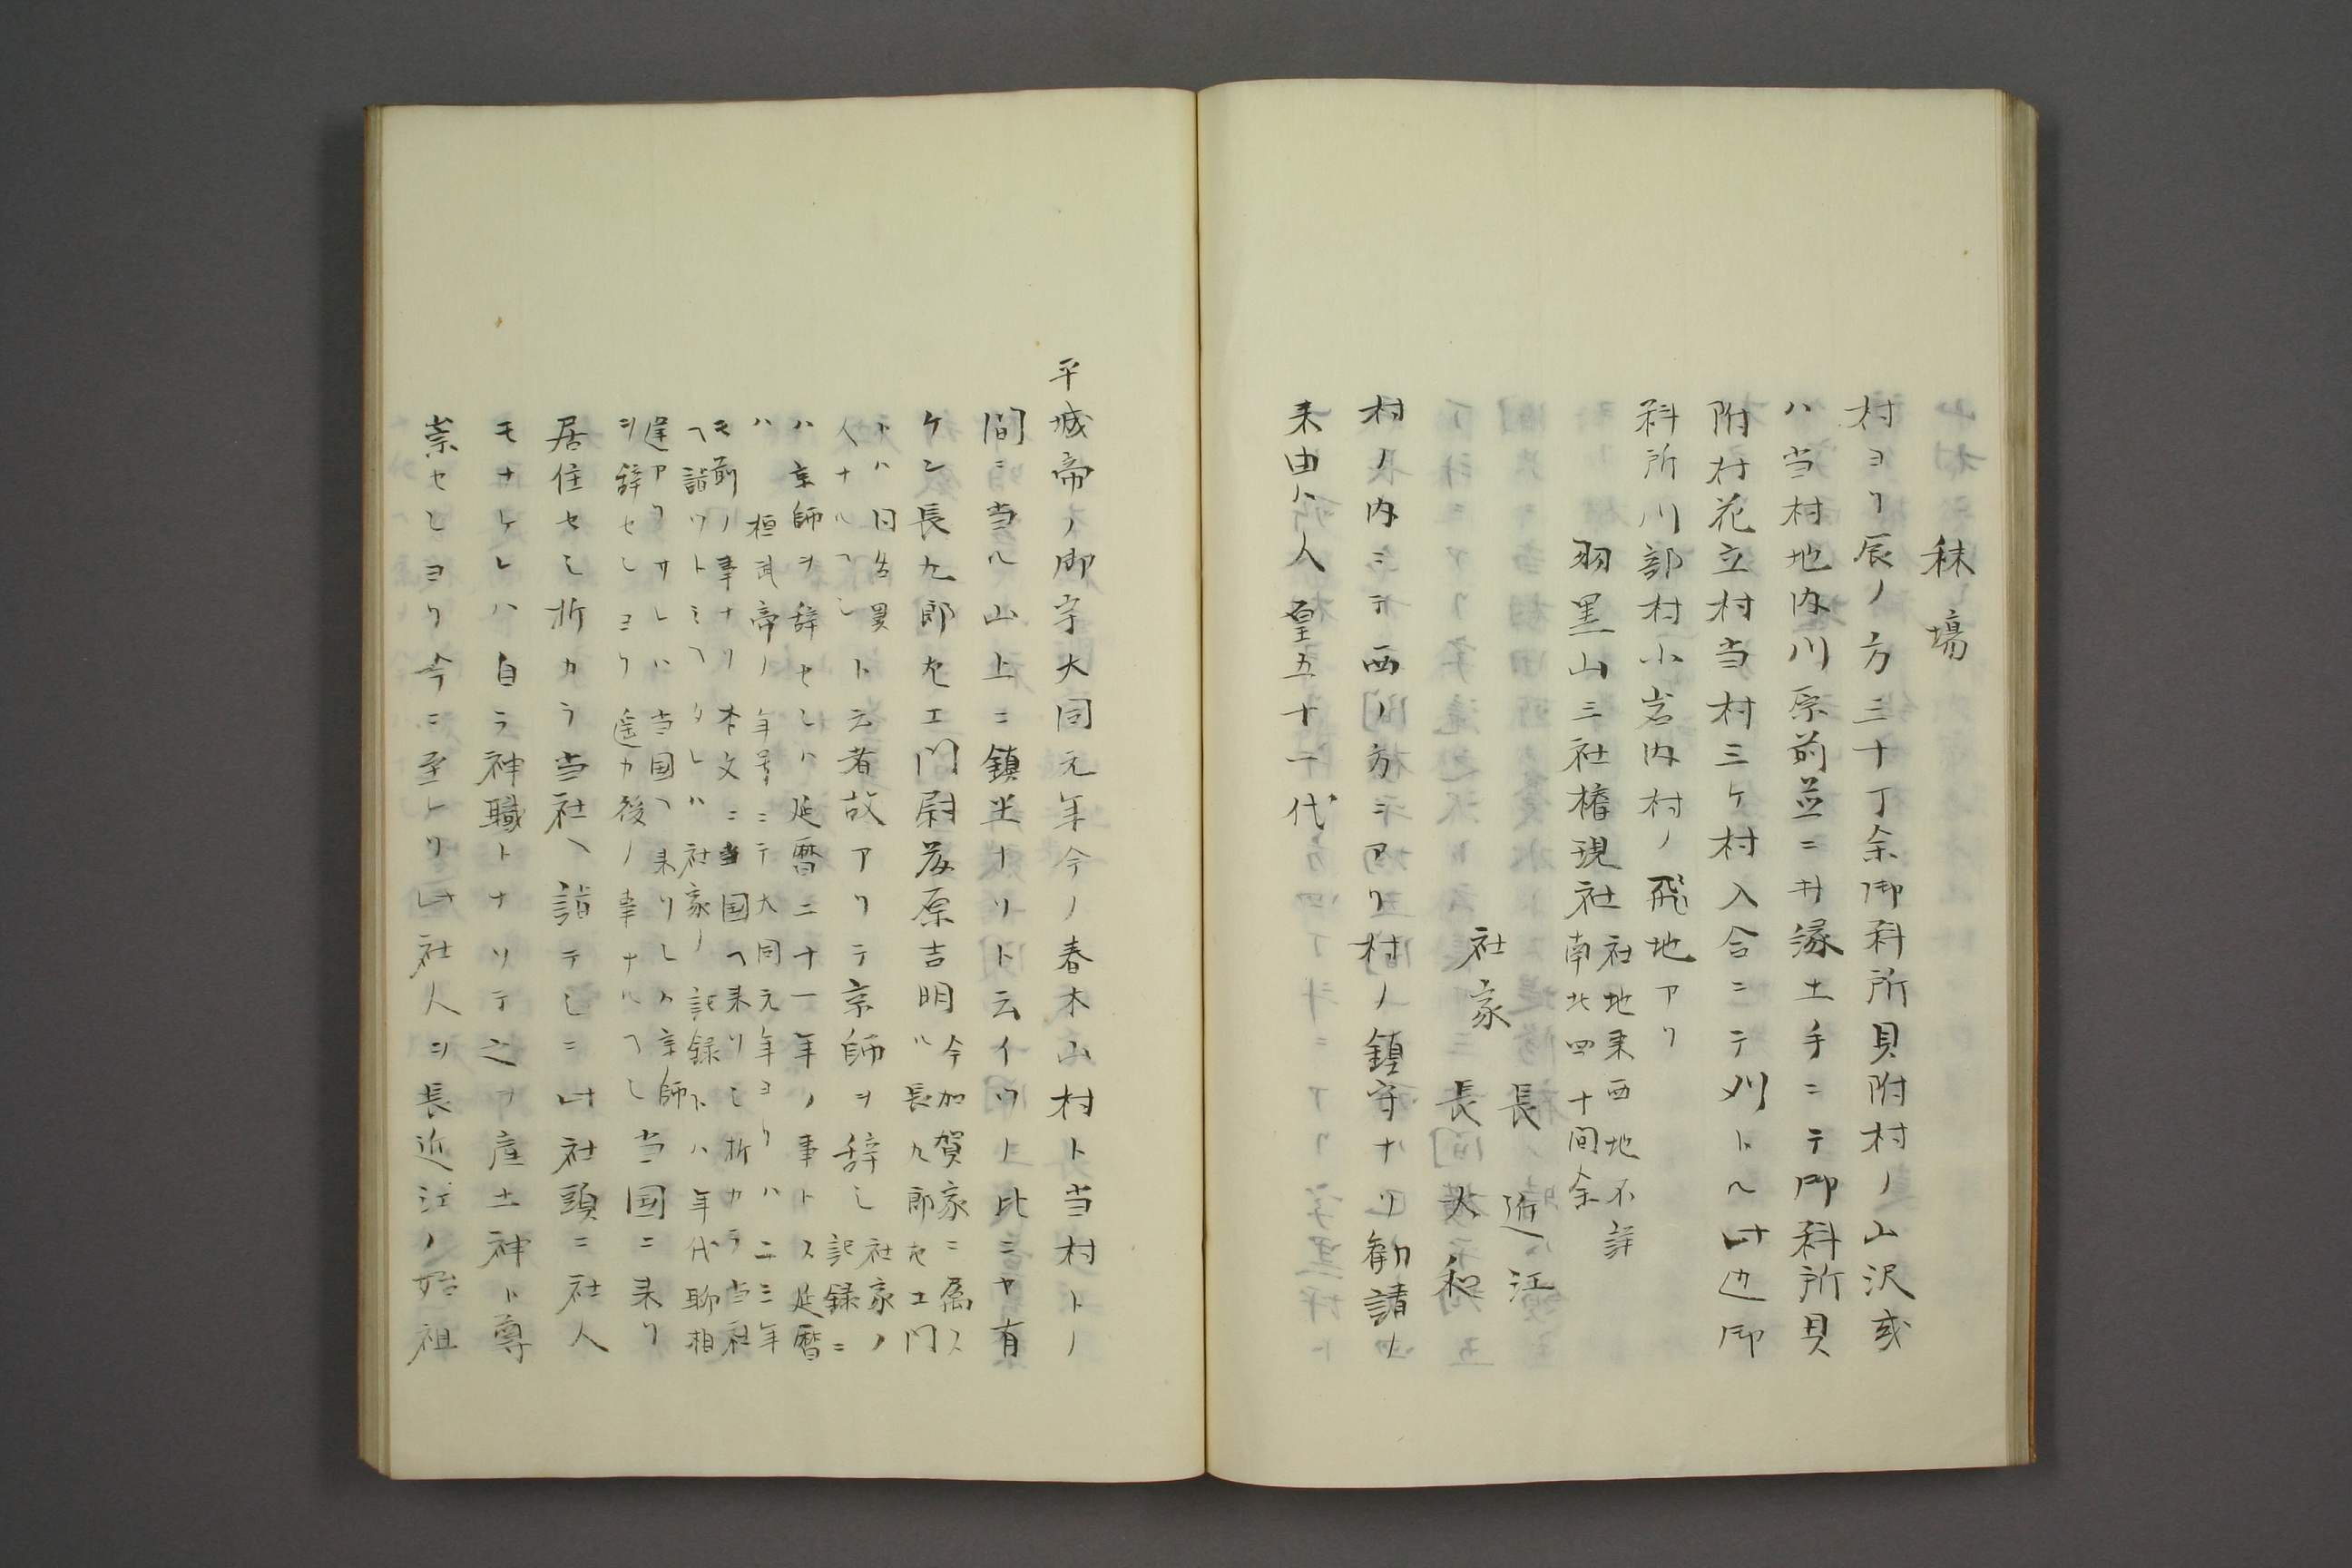 秣場
村ヨリ辰ノ方三十丁余御料所貝附村ノ山沢或
ハ当村地内川原前並ニ井縁土手ニテ御料所貝
附村花立村当村三ケ村入合ニテ刈トル此辺御
料所川部村小岩内村ノ飛地アリ
羽黒山三社椿現社
社地東西地不詳
南北四十間余
社家
長近江
長大和
村ノ内ニテ西ノ方ニアリ村ノ鎮守ナリ勧請ノ
来由ハ人皇五十一代
平城帝ノ御宇大同元年今ノ春木山村ト当村トノ
間ニ当ル山上ニ鎮坐ナリト云イツノ比ニヤ有
ケン長九郎左エ門尉藤原吉明
今加賀家ニ属ス
ル長九郎左エ門
トハ同名異
人ナルヘシ
ト云者故アリテ京師ヲ辞シ
社家ノ
記録ニ
ハ京師ヲ辞セシハ延暦二十一年ノ事トス延暦
ハ桓武帝ノ年号ニテ大同元年ヨリハ二三年
モ前ノ事ナリ本文ニ当国ヘ来リシ折カラ当社
ヘ詣ツトミヘタレハ社家ノ記録トハ年代聊相
違アリサレハ当国ヘ来リシハ京師
ヲ辞セシヨリ遥カ後ノ事ナルヘシ
当国ニ来リ
居住セシ折カラ当社ヘ詣テシニ此社頭ニ社人
モナケレハ自ラ神職トナリテ之ヲ産土神ト尊
崇セシヨリ今ニ至レリ此社人ヲ長近江ノ始祖